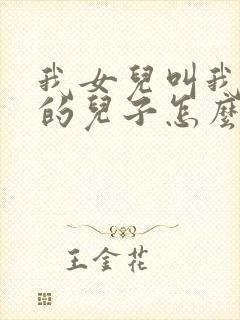 我女兒叫我
的兒子怎麼
王金花